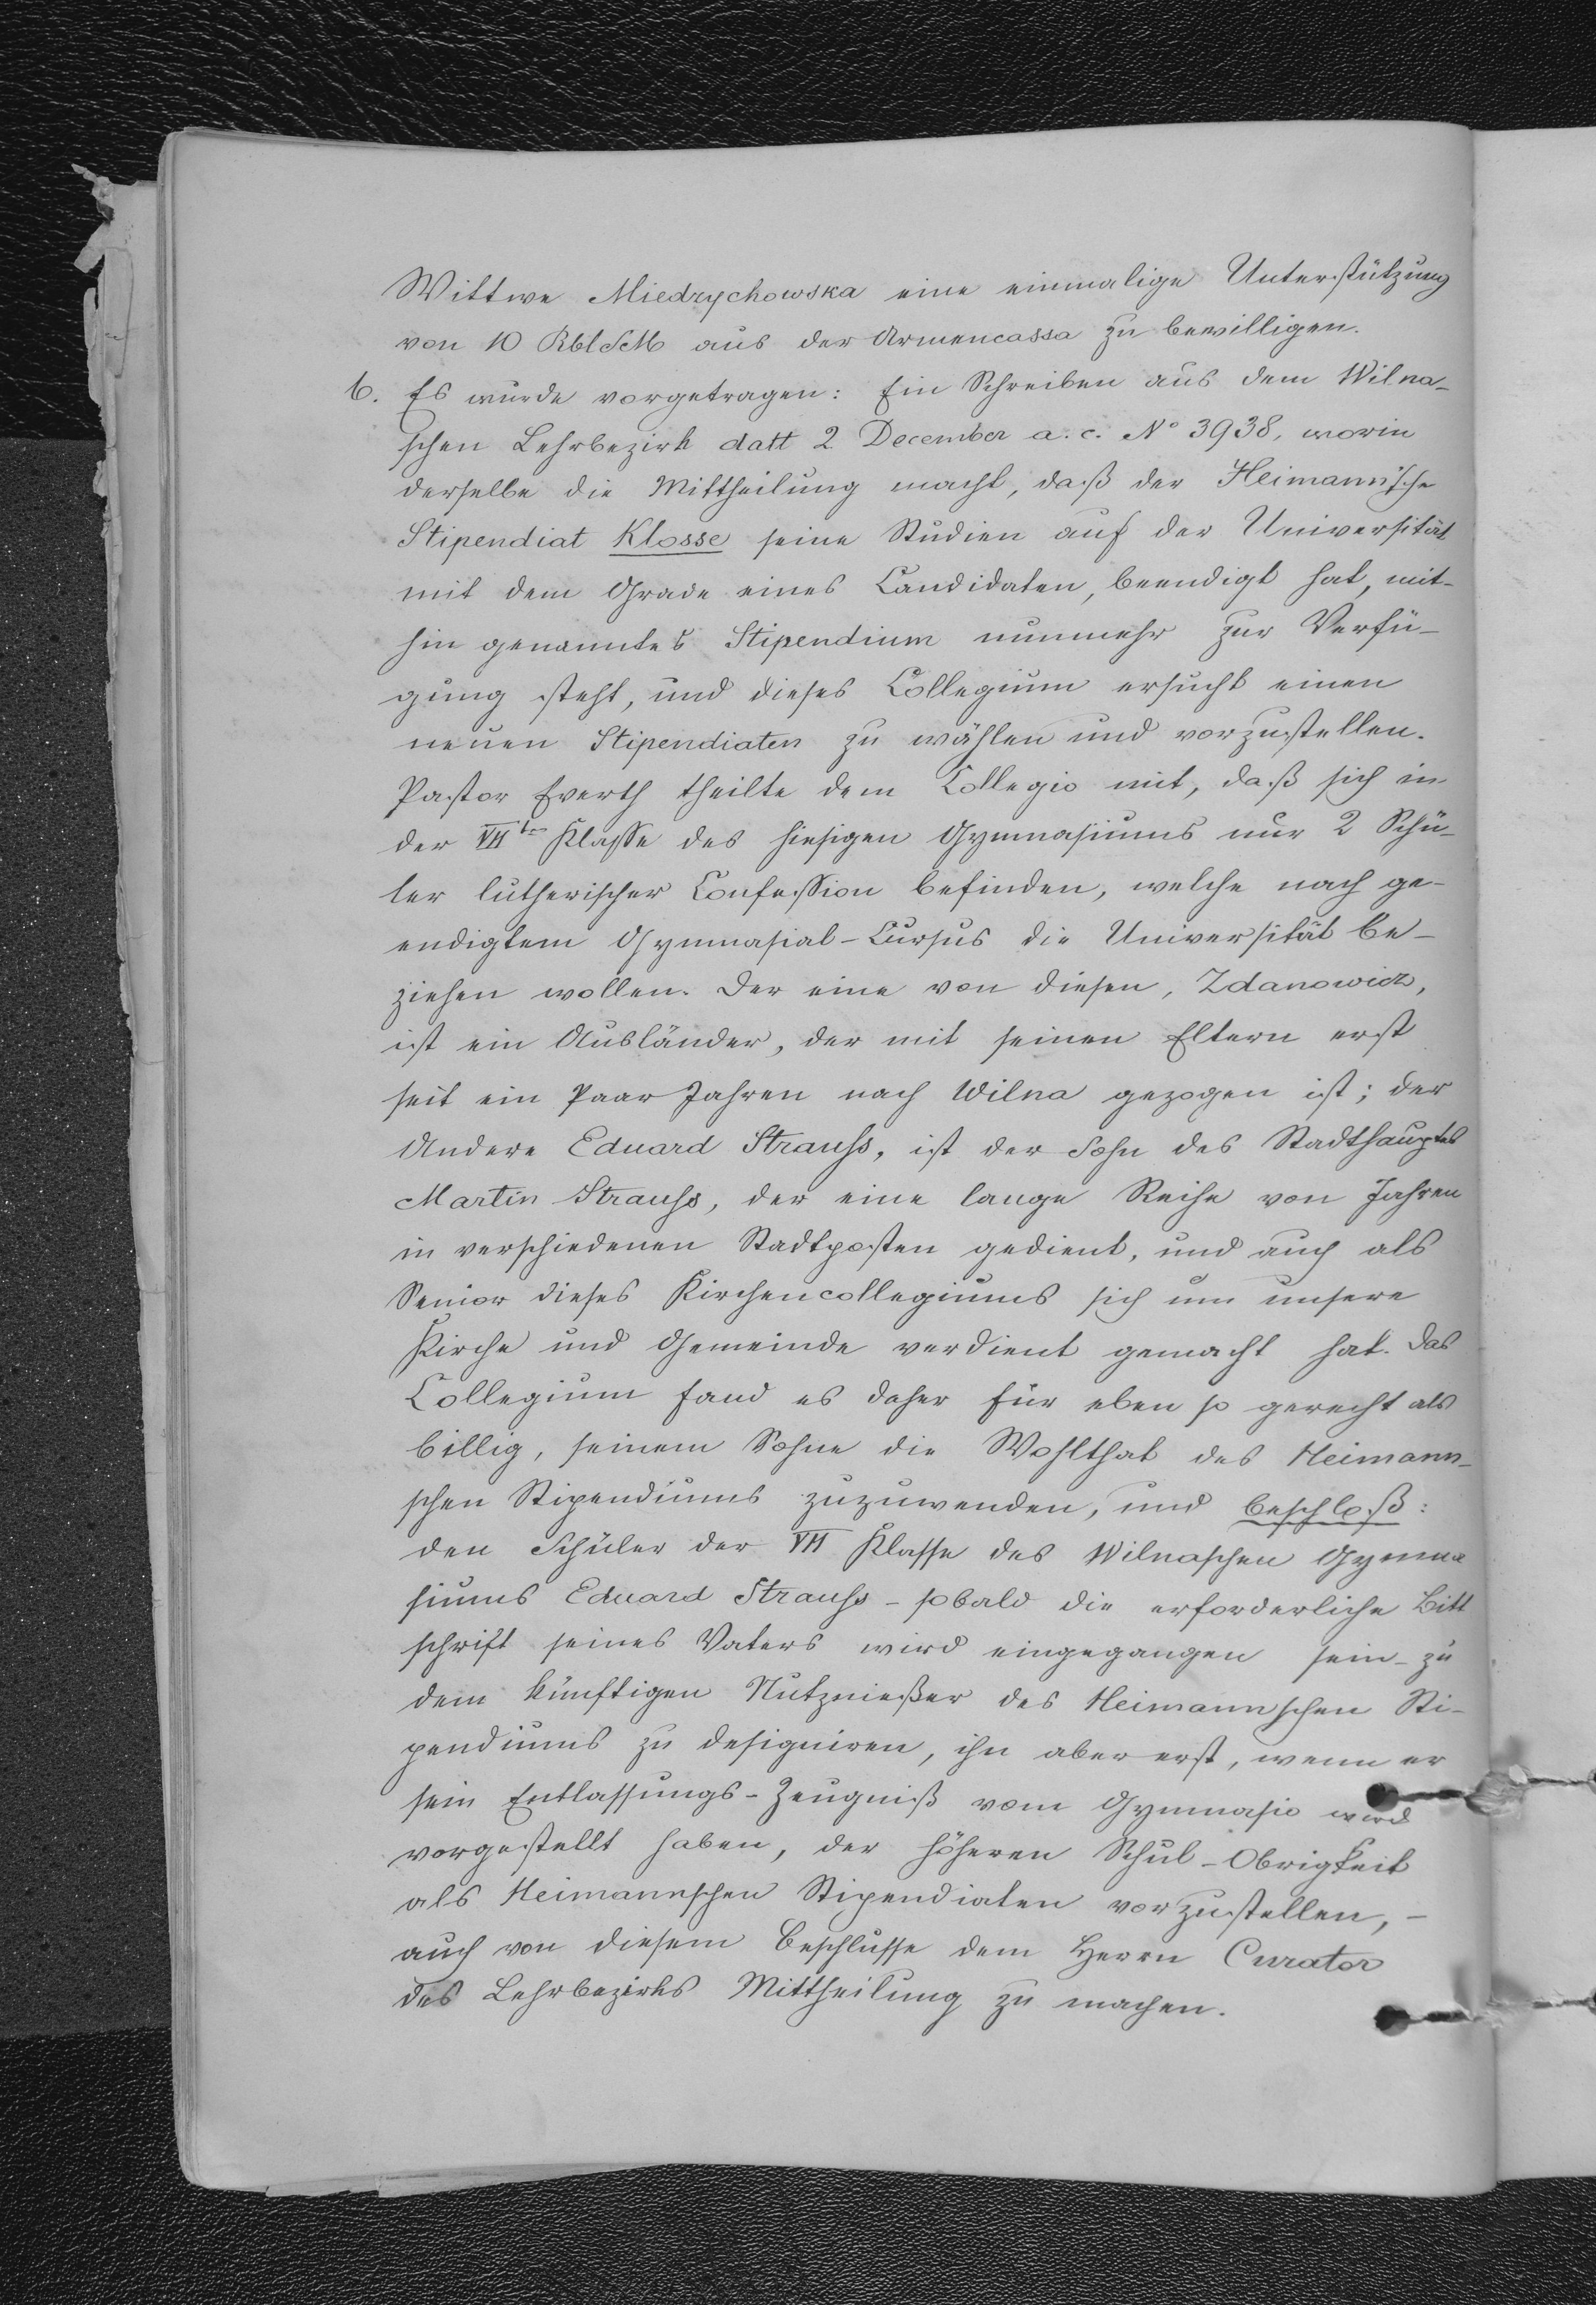 Wittwe Miedrychowska eine einmalige Unterstützung
von 10 Rbl SM aus der Armencassa zu bewilligen.
6. Es wurde vorgetragen: Ein Schreiben aus dem Wilna-
schen Lehrbezirk datt 2 December a. c. No 3938, worin
derselbe die Mittheilung macht, daß der Heimann'sche
Stipendiat Klosse seine Studien auf der Universität
mit dem Grade eines Candidaten, beendigt hat, mit-
hin genanntes Stipendium nunmehr zur Verfü-
gung steht, und dieses Collegium ersucht einen
neuen Stipendiaten zu wählen und vorzustellen.
Pastor Everth theilte dem Collegio mit, daß sich in
der VIIten Klasse des hiesigen Gymnasiums nur 2 Schü-
ler lutherischer Confession befinden, welche nach ge-
endigtem Gymnasial-Cursus die Universität be-
ziehen wollen. Der eine von diesen, Zdanowicz,
ist ein Ausländer, der mit seinen Eltern erst
seit ein Paar Jahren nach Wilna gezogen ist; der
Andere Eduard Strauss, ist der Sohn des Stadthauptes
Martin Strauss, der eine lange Reihe von Jahren
in verschiedenen Stadtposten gedient, und auch als
Senior dieses Kirchencollegiums sich um unsere
Kirche und Gemeinde verdient gemacht hat. Das
Collegium fand es daher für eben so gerecht als
billig, seinem Sohne die Wohlthat des Heimann-
schen Stipendiums zuzuwenden, und beschloß:
den Schüler der VII Klasse des Wilnaschen Gymna
siums Eduard Strauss - sobald die erforderliche Bitt
schrift seines Vaters wird eingegangen sein - zu
dem künftigen Nutznießer des Heimannschen Sti-
pendiums zu designiren, ihn aber erst, wenn er
sein Entlassungs-Zeugniß vom Gymnasio wird
vorgestellt haben, der höheren Schul-Obrigkeit
als Heimannschen Stipendiaten vorzustellen, -
auch von diesem Beschlusse dem Herrn Curator
des Lehrbezirks Mittheilung zu machen.